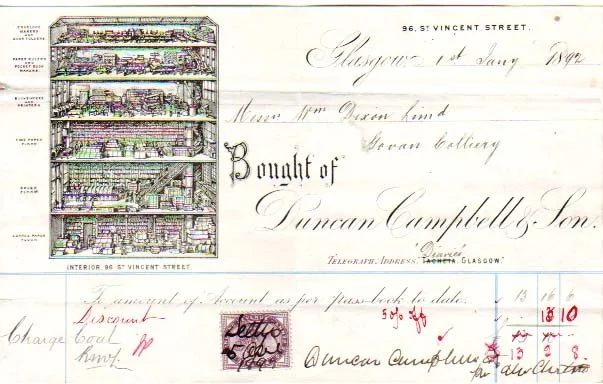 ENVELOPE
MAKERS
AND
96, ST VINCENT STREET.
Glasgow 1st Jany 1892
PAPER RULERS
AND
POCKET BOOK
MAKERS.
BOOKBINDERS
AND
PRINTERS
FINE PAPER
FLOOR
SALES
FLOOR
COARSE PAPER
FLOOR
INTERIOR 96 ST VINCENT STREET.
Messrs Wm Dixon Limd
Govan Colliery
Bought of
Duncan Campbell & Son.
Diaries
TELEGRAPH ADDRESS. TACHEIA, GLASGOW.
To amount of Account as per pass-book to date. 13 16 6
Discount 5% off 13 10
Charge Coal
13 2 8
Duncan Campbell